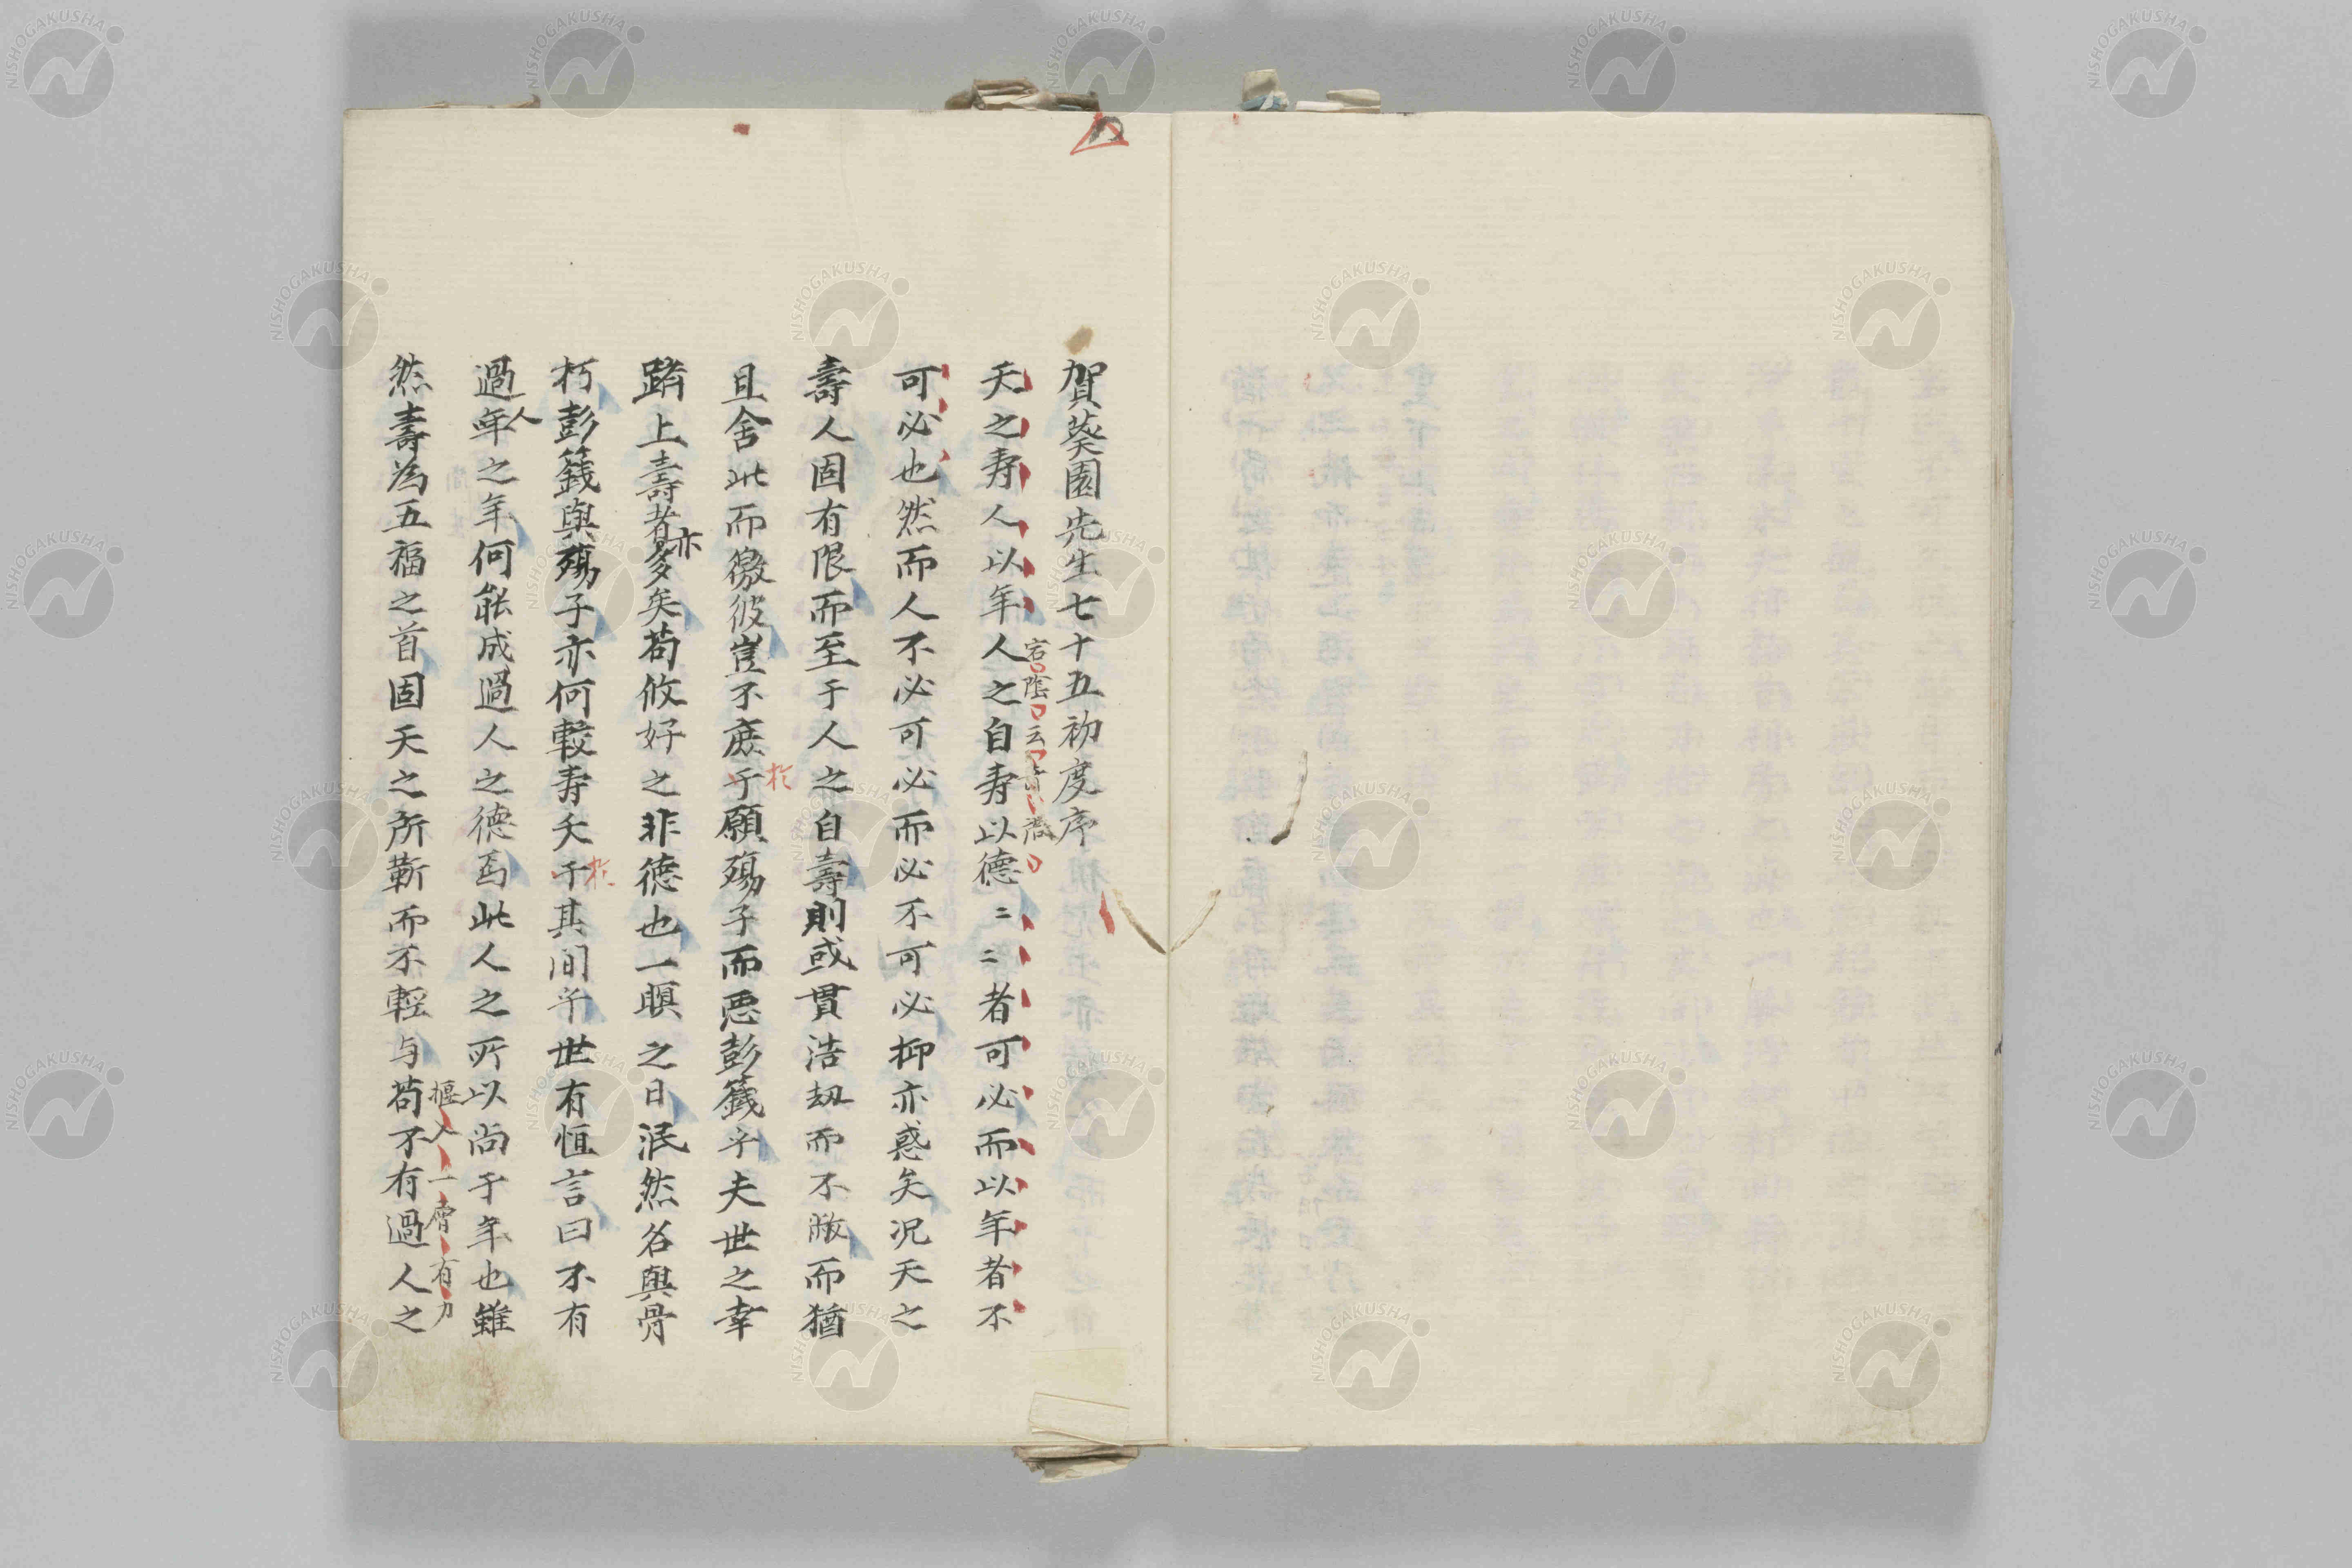 賀葵園先生七十五初度序
天之寿人以年人之自寿以德二二者可必而以年者不
宕陰云
可必也然而人不必可必而必不可必抑亦惑矣况天之
壽人固有限而至于人之自壽則或貫浩劫而不敝而猶
且舍此而徼彼豈不庶于願殤子而惡彭籛乎夫世之幸
於
躋上壽者多矣苟攸好之非德也一瞑之日泯然名與骨
亦
朽彭籛與殤子亦何較寿夭于其间乎世有恒言曰不有
於
過年之年何能成過人之德焉此人之所以尚于年也雖
人
然壽為五福之首固天之所蘄而不輕与苟不有過人之
入一層有力
NISHOGAKUSHA